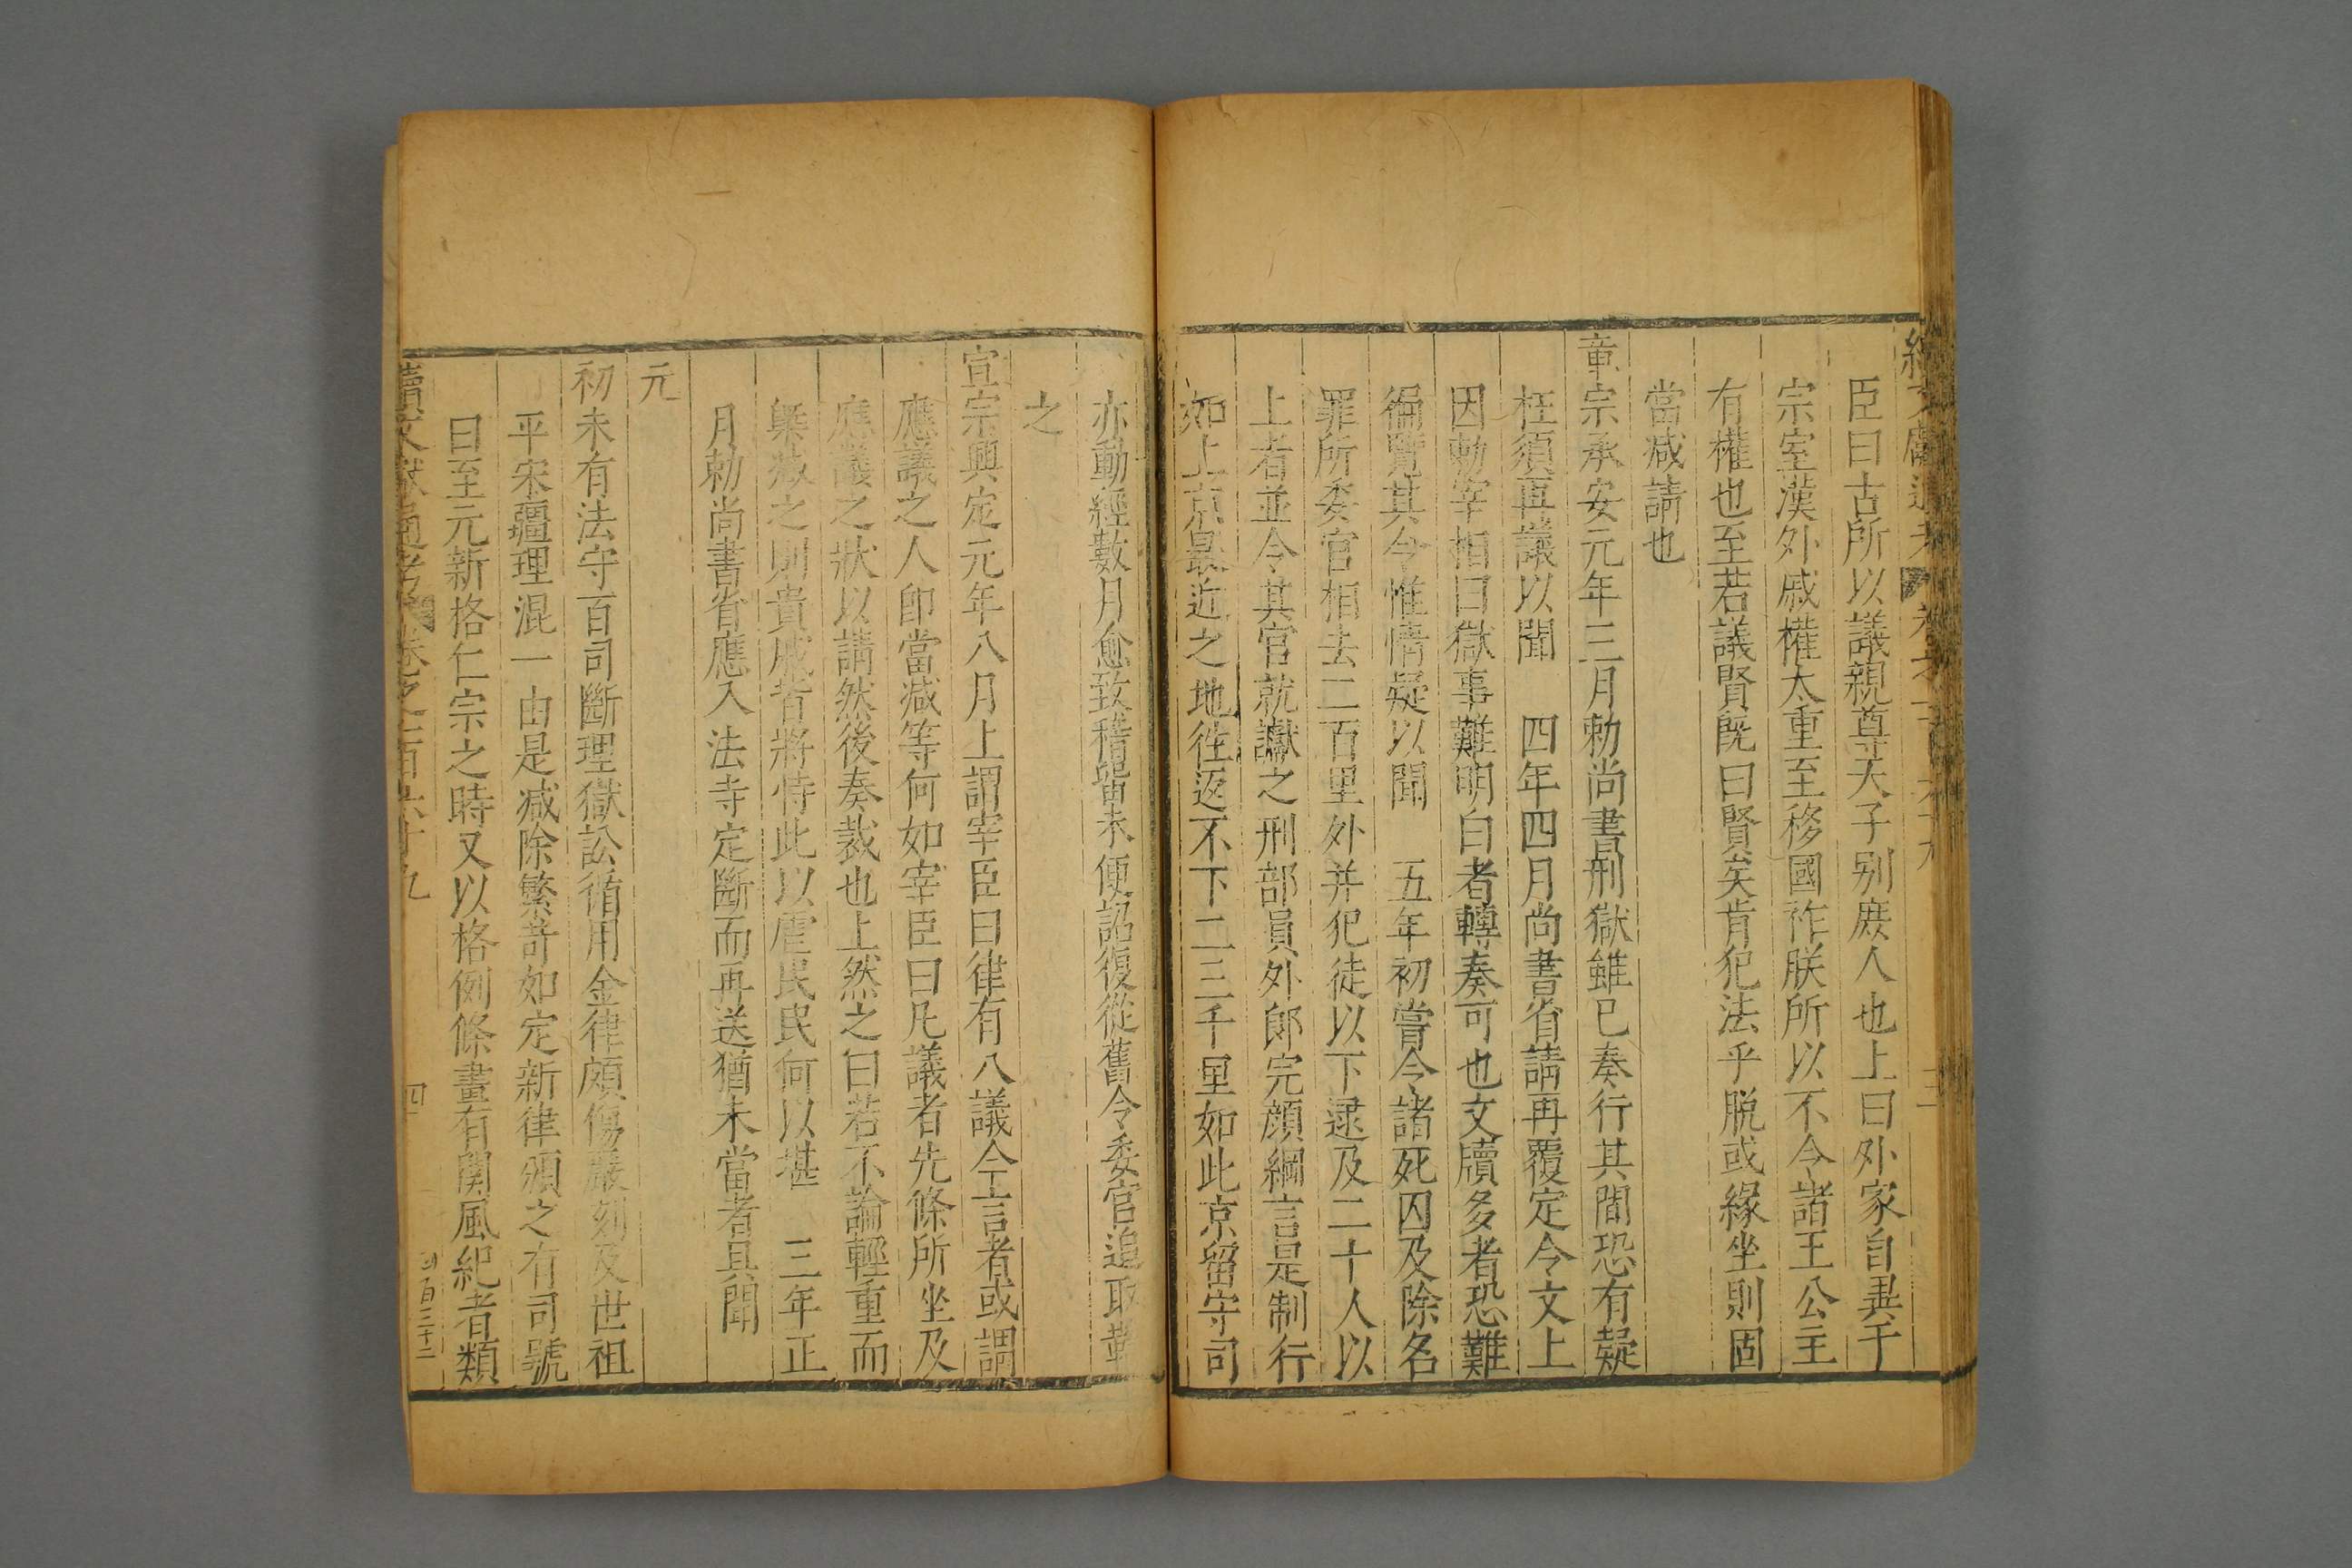 臣曰古所以議親尊天子别庶人也上曰外家自異于
宗室漢外戚權太重至移國祚朕所以不令諸王公主
有權也至若議賢既曰賢矣肯犯法乎脱或緣坐則固
當减請也
章宗承安元年三月勅尚書刑獄雖已奏行其間恐有疑
枉須再議以聞　四年四月尚書省請再覆定令文上
因勅宰相曰獄事難明白者轉奏可也文牘多者恐難
徧覽其令惟情疑以聞　五年初嘗令諸死囚及除名
罪所委官相去二百里外并犯徒以下逮及二十人以
上者並令其官就讞之刑部員外郎完顔綱言是制行
如上京最近之地往返不下二三千里如此京留守司
亦動經數月愈致稽留未便詔復從舊令委官追取鞫
之
宣宗興定元年八月上謂宰臣曰律有八議今言者或謂
應議之人即當减等何如宰臣曰凡議者先條所坐及
應議之狀以請然後奏裁也上然之曰若不論輕重而
槩减之則貴戚皆將恃此以虐民民何以堪　三年正
月勅尚書省應入法寺定斷而再送猶未當者且聞
元
初未有法守百司斷理獄訟循用金律頗傷嚴刻及世祖
平宋疆理混一由是减除繁苛如定新律頒之有司號
曰至元新格仁宗之時又以格例條畫有関風紀者類
續文獻通考　卷之一百六十九　四